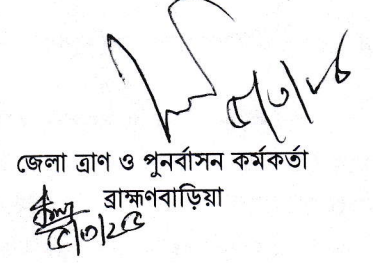 ৫/৩/২৫
জেলা ত্রাণ ও পুনর্বাসন কর্মকর্তা
ব্রাহ্মণবাড়িয়া
৫/৩/২৫